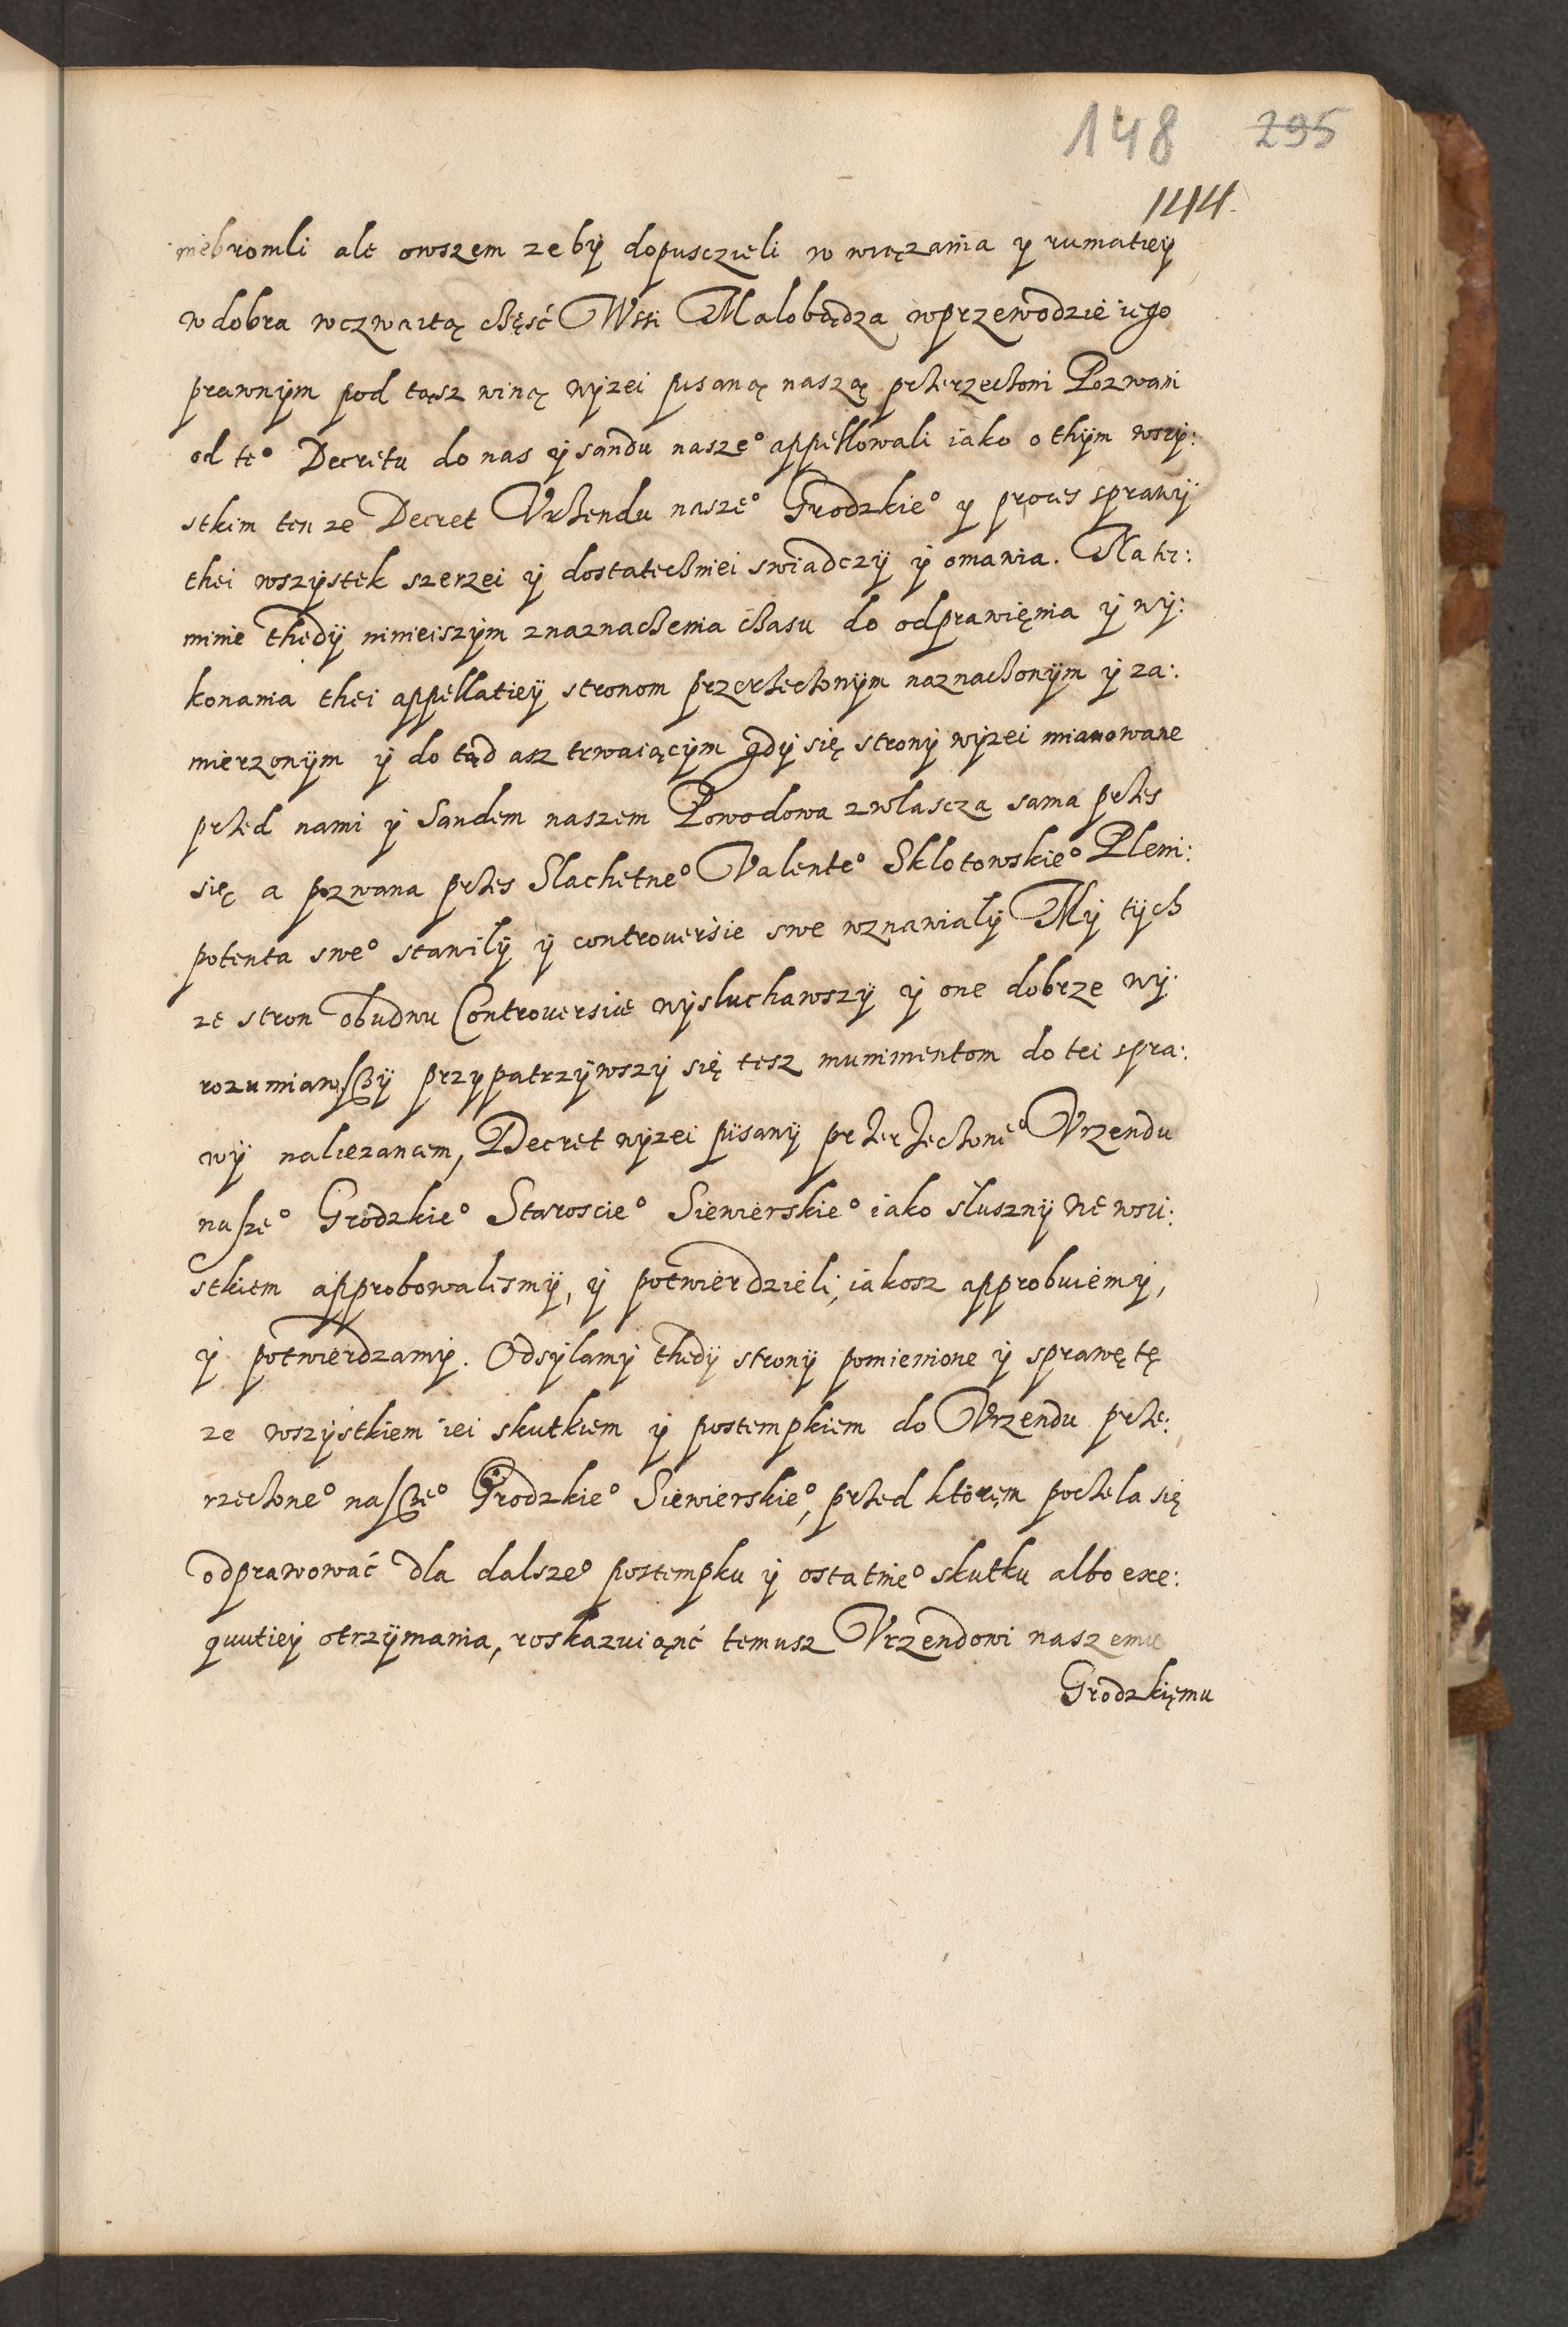 148 295
144.
niebromli ale owszem zeby dopusczieli w wiązania y rumatiey
w dobra wczwartą częsć Wssi Malobądza wprzewodzie iego
prawnÿm pod tąsz winą wÿzei pisaną naszą przerzeczoni Pozwani
od te° Decretu do nas ÿ sandu nasze° appellowali iako o thÿm wszÿ:
stkim ten ze Decret Vrzendu nasze° Grodzkie° y proces sprawÿ
thei wszÿstek szerzei ÿ dostateczniei swiadczÿ ÿ omawia. Na ter:
minie thedÿ ninieiszÿm znaznaczenia czasu do odprawięnia ÿ wÿ:
konania thei appellatieÿ stronom przerzeczonÿm naznaczonÿm ÿ za:
mierzonÿm ÿ do tąd asz trwaiącÿm gdÿ się stronÿ wÿzei mianowane
przed nami ÿ Sandem naszem Powodowa zwlascza sama przes
się a pozwana przes Slachetne° Valente° Sklotowskie° Pleni:
potenta swe° stawilÿ ÿ controuersie swe wznawialÿ Mÿ tÿch
ze stron obudwu Controuersiie wÿsluchawszÿ ÿ one dobrze wÿ:
rozumiawszÿ przypatrzÿwszÿ się tesz munimentom do tei spra:
wÿ naliezancem, Decret wÿzei pisanÿ przerzeczone° Vrzendu
nasze° Grodzkie° Staroscie° Siewierskie° iako slusznÿ we wszi:
stkiem approbowalismÿ, ÿ potwierdzieli, iakosz approbuiemÿ,
ÿ potwierdzamÿ. Odsÿlamÿ thedÿ stronÿ pomienione ÿ sprawę tę
ze wszÿstkiem iei skutkiem ÿ postempkiem do Vrzendu prze:
rzeczone° nasze° Grodzkie° Siewierskie°, przed ktorem poczela się
odprawować dla dalsze° postempku ÿ ostatnie° skutku albo exe:
quutieÿ otrzÿmania, roskazuiąnć temusz Vrzendowi naszemu
Grodzkięmu